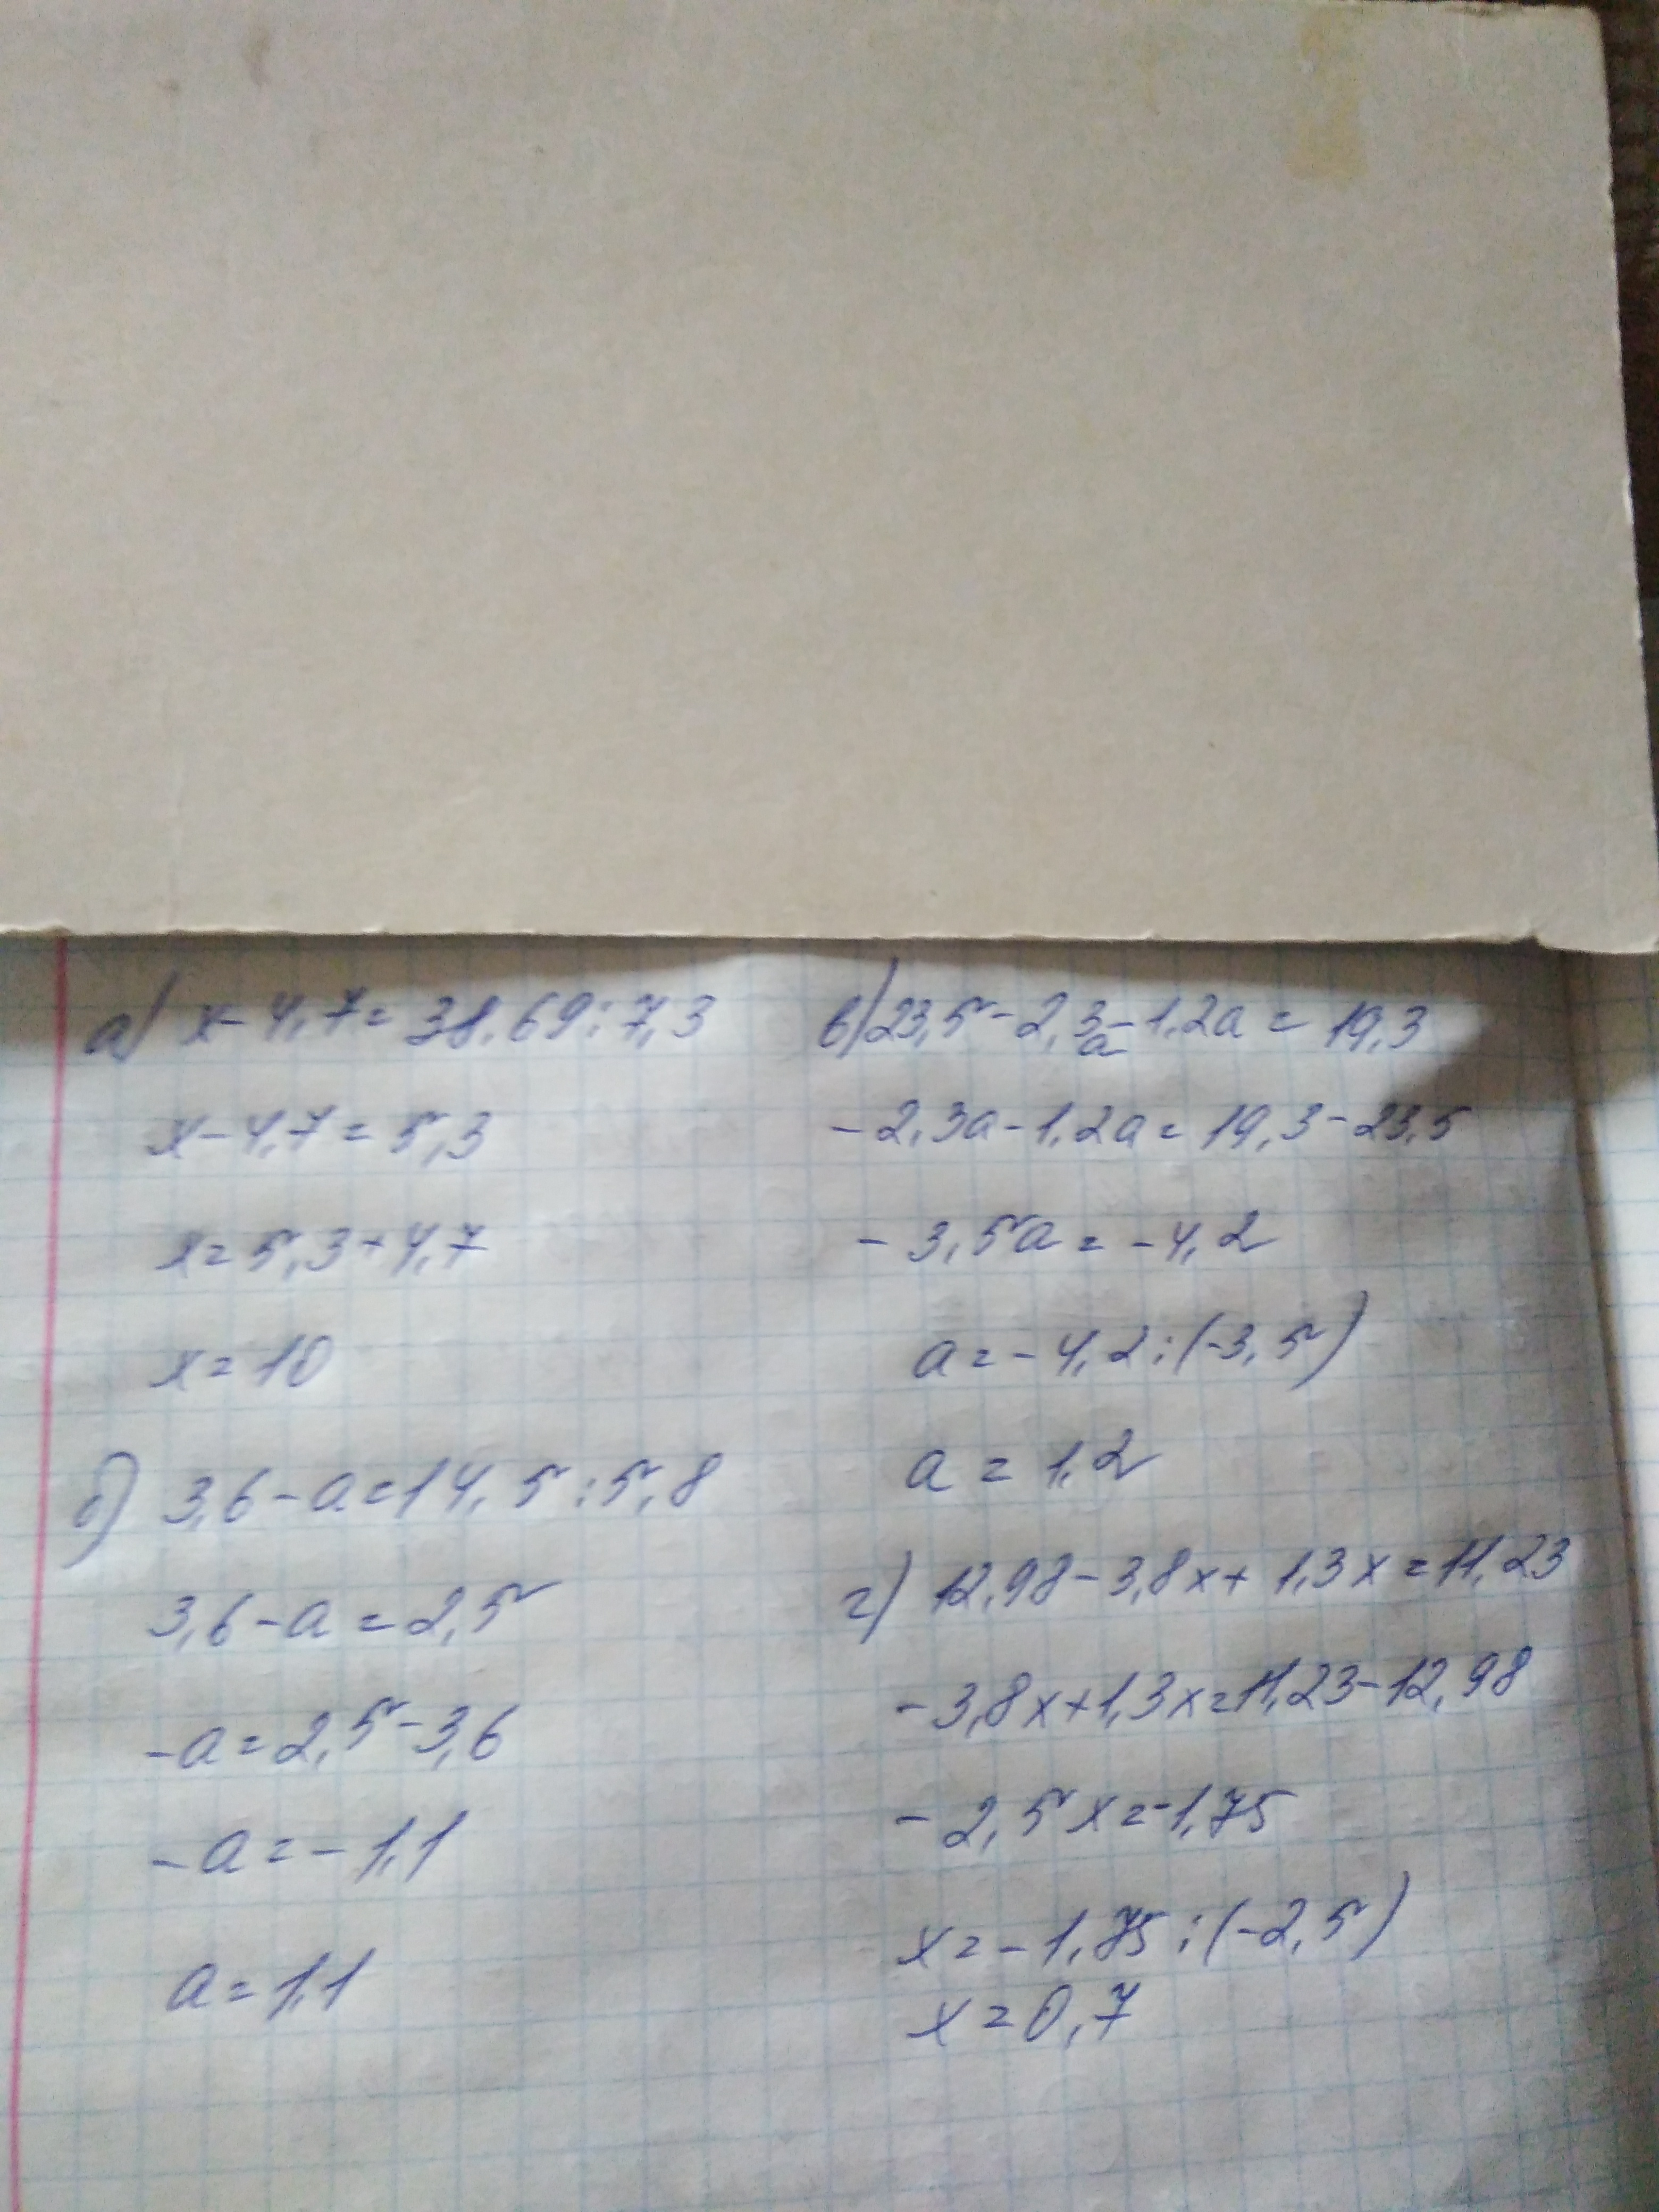 а) x-4,7=38,69:7,3
x-4,7=5,3
x=5,3+4,7
x=10
б) 3,6-a=14,5:5,8
3,6-a=2,5
-a=2,5-3,6
-a=-1,1
a=1,1
в) 23,5-2,3a-1,2a=19,3
-2,3a-1,2a=19,3-23,5
-3,5a=-4,2
a=-4,2:(-3,5)
a=1,2
г) 12,98-3,8x+1,3x=11,23
-3,8x+1,3x=11,23-12,98
-2,5x=-1,75
x=-1,75:(-2,5)
x=0,7